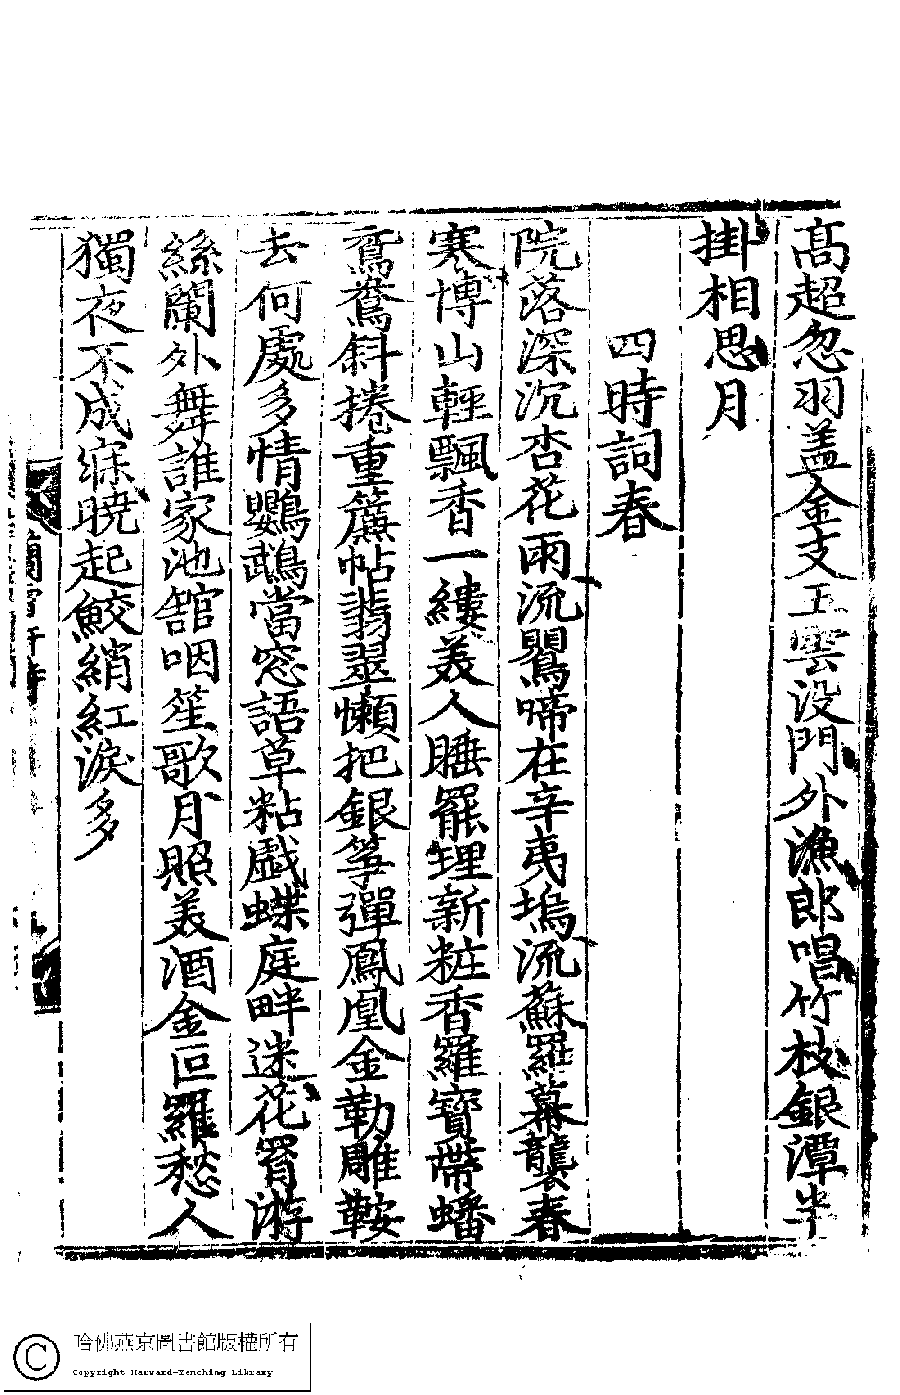 高超忽羽盖金支玉雲没門外漁郎唱竹枝銀潭半
掛相思月
四時詞春
院落深沉杏花雨流鸎啼在辛夷塢流蘇羅幕襲春
寒博山輕飄香一縷美人睡罷理新粧香羅寶帶蟠
鴛鴦斜捲重簾帖翡翠懶把銀箏彈鳳凰金勒雕鞍
去何處多情鸚鵡當窓語草粘戱蝶庭畔迷花罥游
絲闌外舞誰家池舘咽笙歌月照美酒金叵羅愁人
獨夜不成寐曉起鮫綃紅淚多
蘭雪軒詩
哈佛燕京圖書館版權所有
Copyright Harvard-Yenching Library